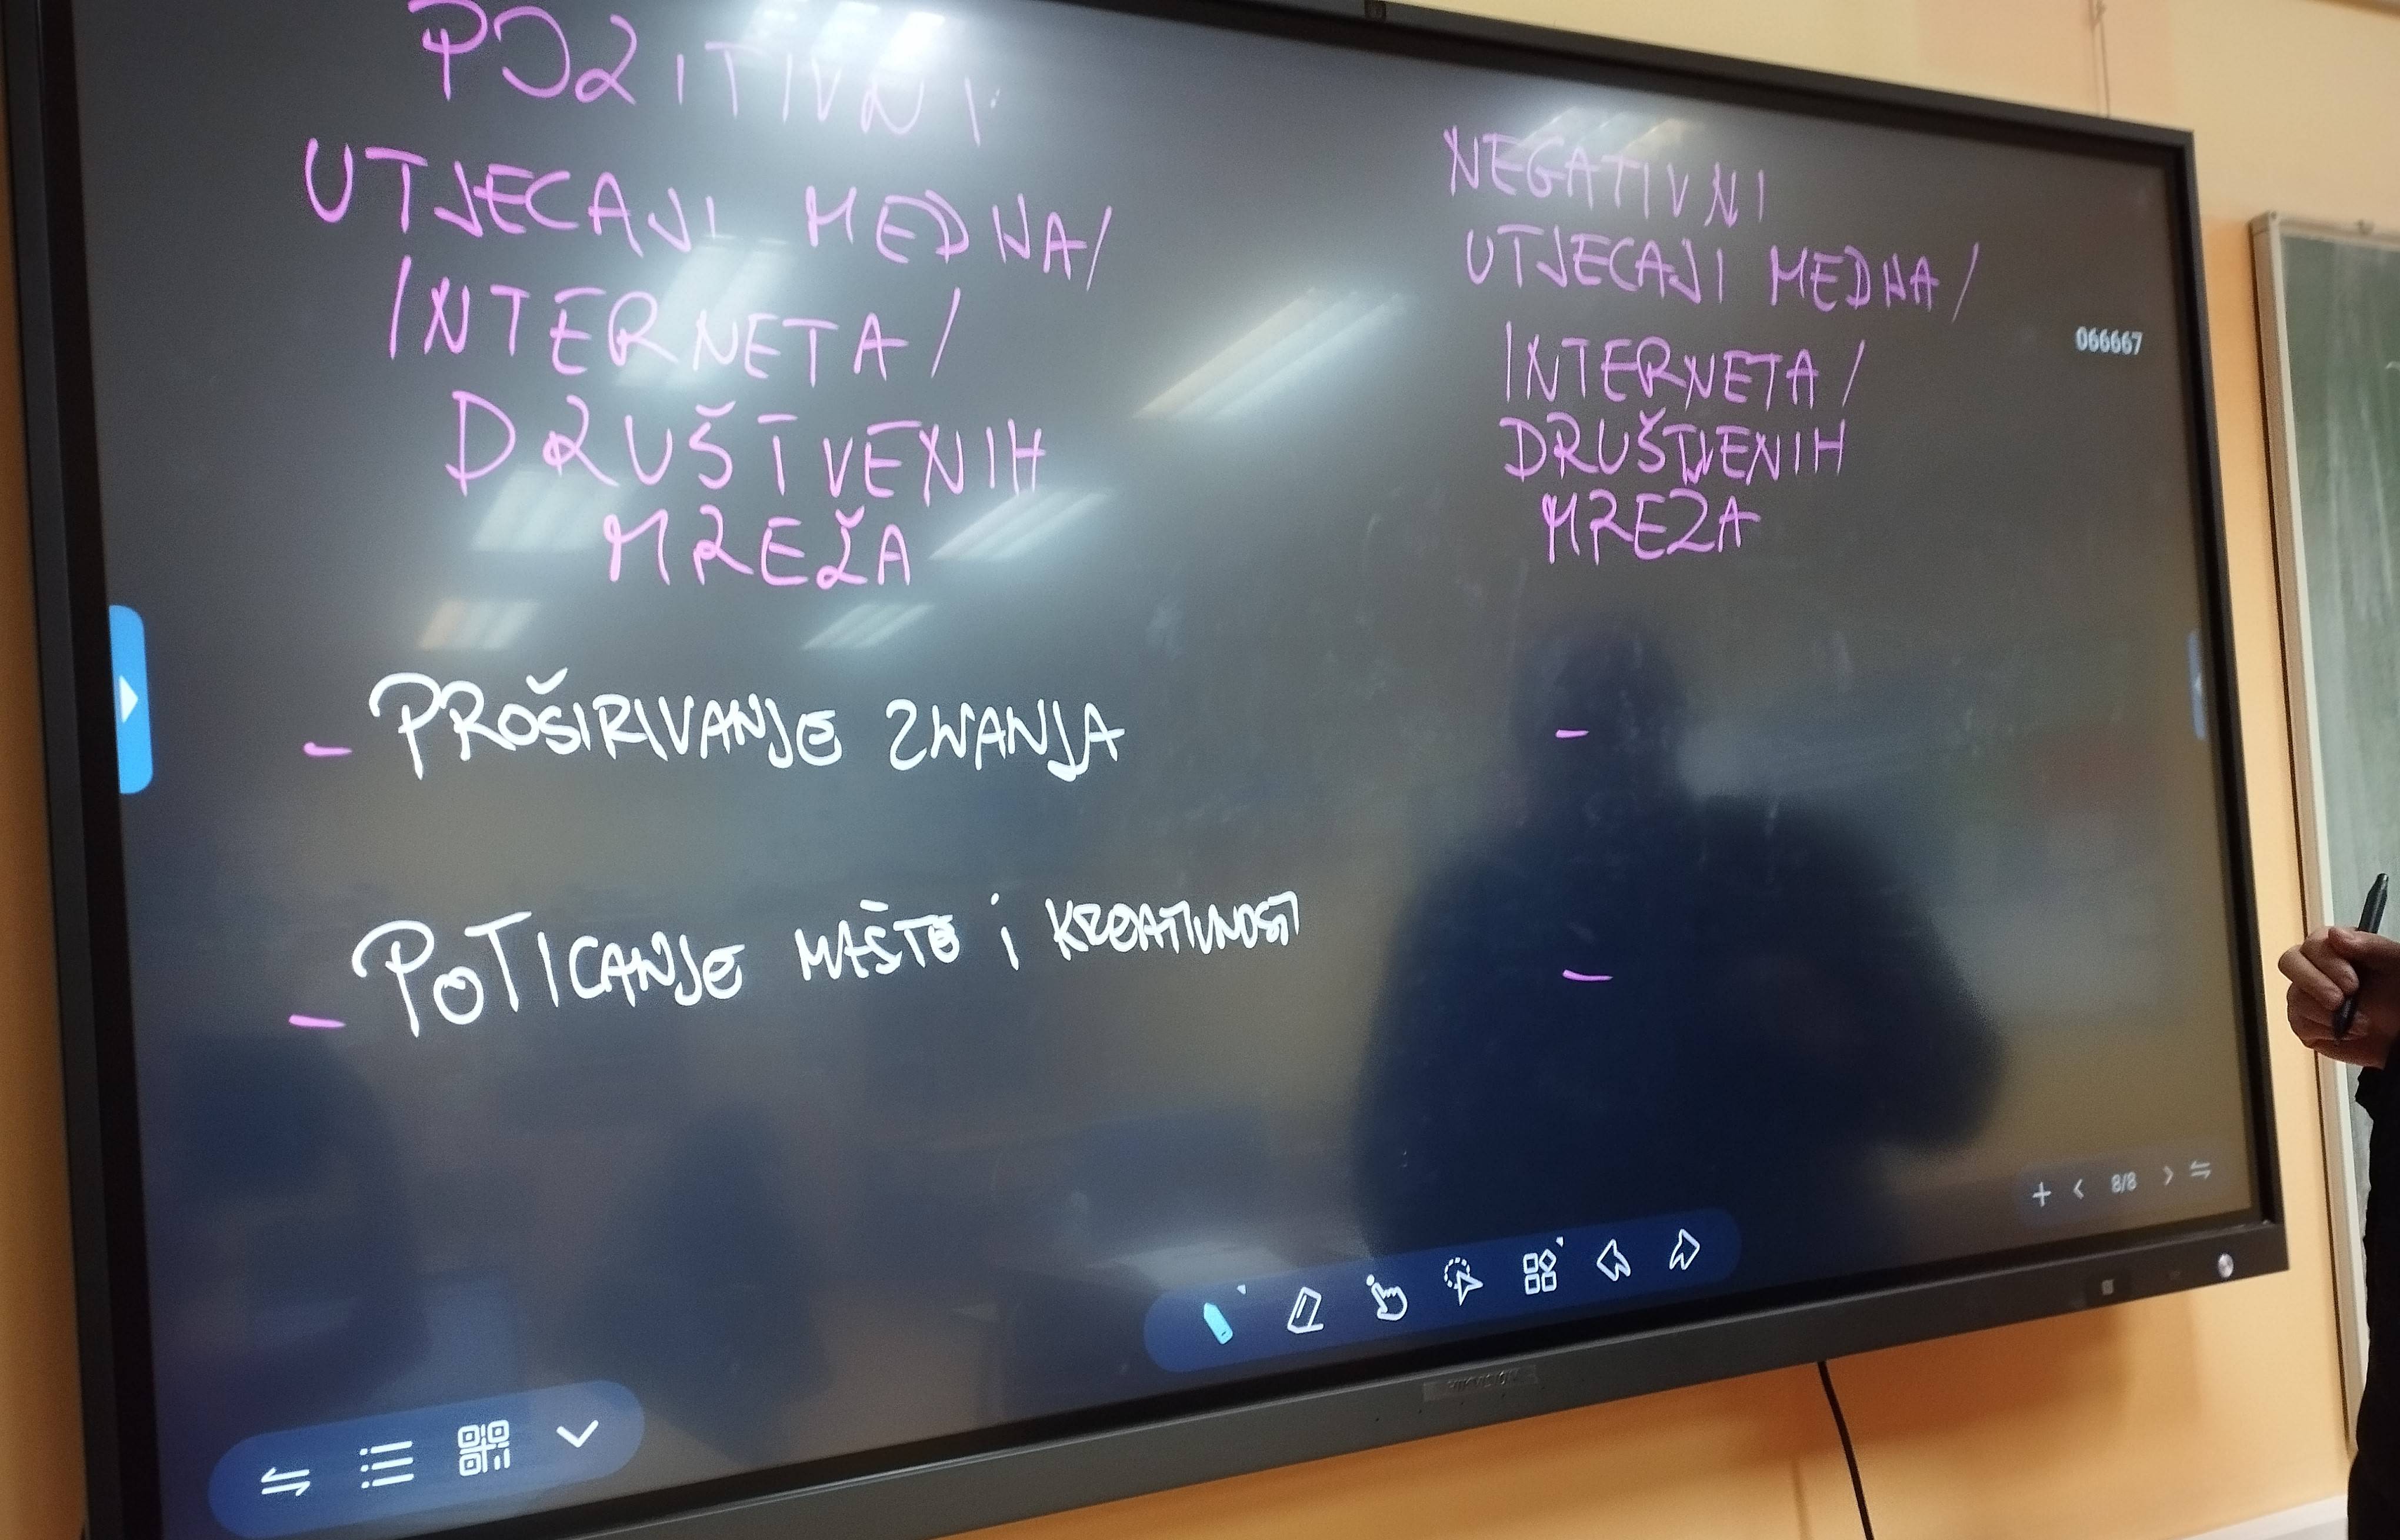 POZITIVNI
UTJECAJI MEDIJA/
INTERNETA/
DRUŠTVENIH
MREŽA
- PROŠIRIVANJE ZNANJA
- POTICANJE MAŠTE i KREATIVNOSTI
NEGATIVNI
UTJECAJI MEDIJA/
INTERNETA/
DRUŠTVENIH
MREZA
-
-
066667
8/8